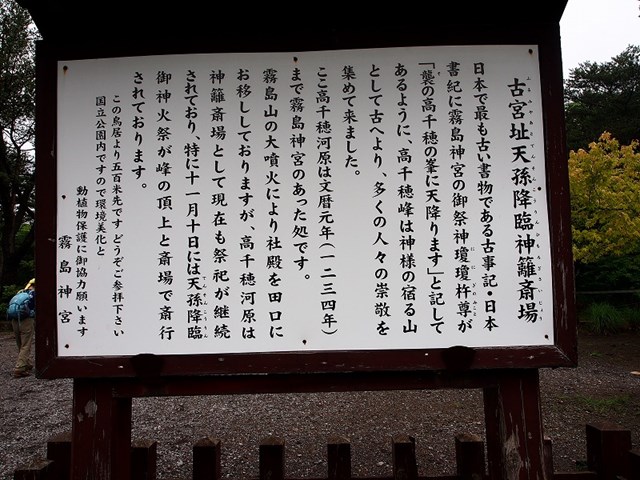 古宮址天孫降臨神籬斎場
日本で最も古い書物である古事記・日本
書紀に霧島神宮の御祭神瓊瓊杵尊が
「襲の高千穂の峯に天降ります」と記して
あるように、高千穂峰は神様の宿る山
として古へより、多くの人々の崇敬を
集めて来ました。
ここ高千穂河原は文暦元年(一二三四年)
まで霧島神宮のあった処です。
霧島山の大噴火により社殿を田口に
お移ししておりますが 高千穂河原は
神籬斎場として現在も祭祀が継続
されており、特に十一月十日には天孫降臨
御神火祭が峰の頂上と斎場で斎行
されております。
この鳥居より五百米先です どうぞご参拝下さい
国立公園内ですので環境美化と
動植物保護に御協力願います
霧島神宮